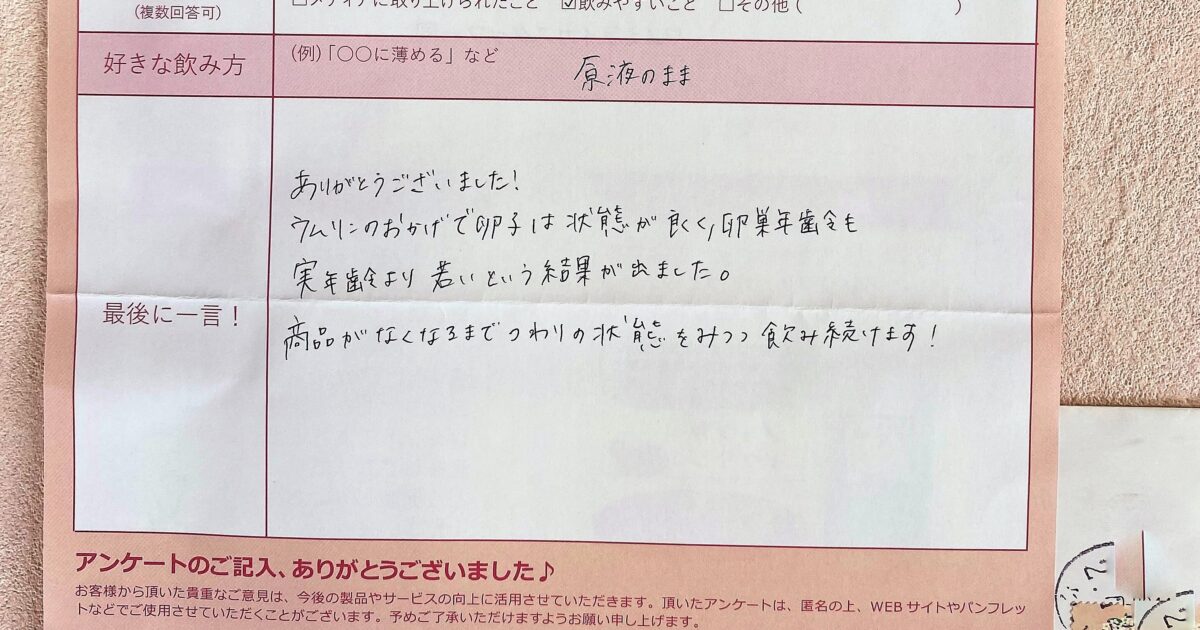 (複数回答可)
□メディアに取り上げられたこと ☑飲みやすいこと □その他 ( )
好きな飲み方
(例)「〇〇に薄める」など
原液のまま
ありがとうございました!
ウムリンのおかげで卵子は状態が良く,卵巣年歯令も
実年齢より若いという結果が出ました。
最後に一言!
商品がなくなるまでつわりの状態をみつつ飲み続けます!
アンケートのご記入、ありがとうございました♪
お客様から頂いた貴重なご意見は、今後の製品やサービスの向上に活用させていただきます。頂いたアンケートは、匿名の上、WEBサイトやパンフレッ
トなどでご使用させていただくことがございます。予めご了承いただけますようお願い申し上げます。